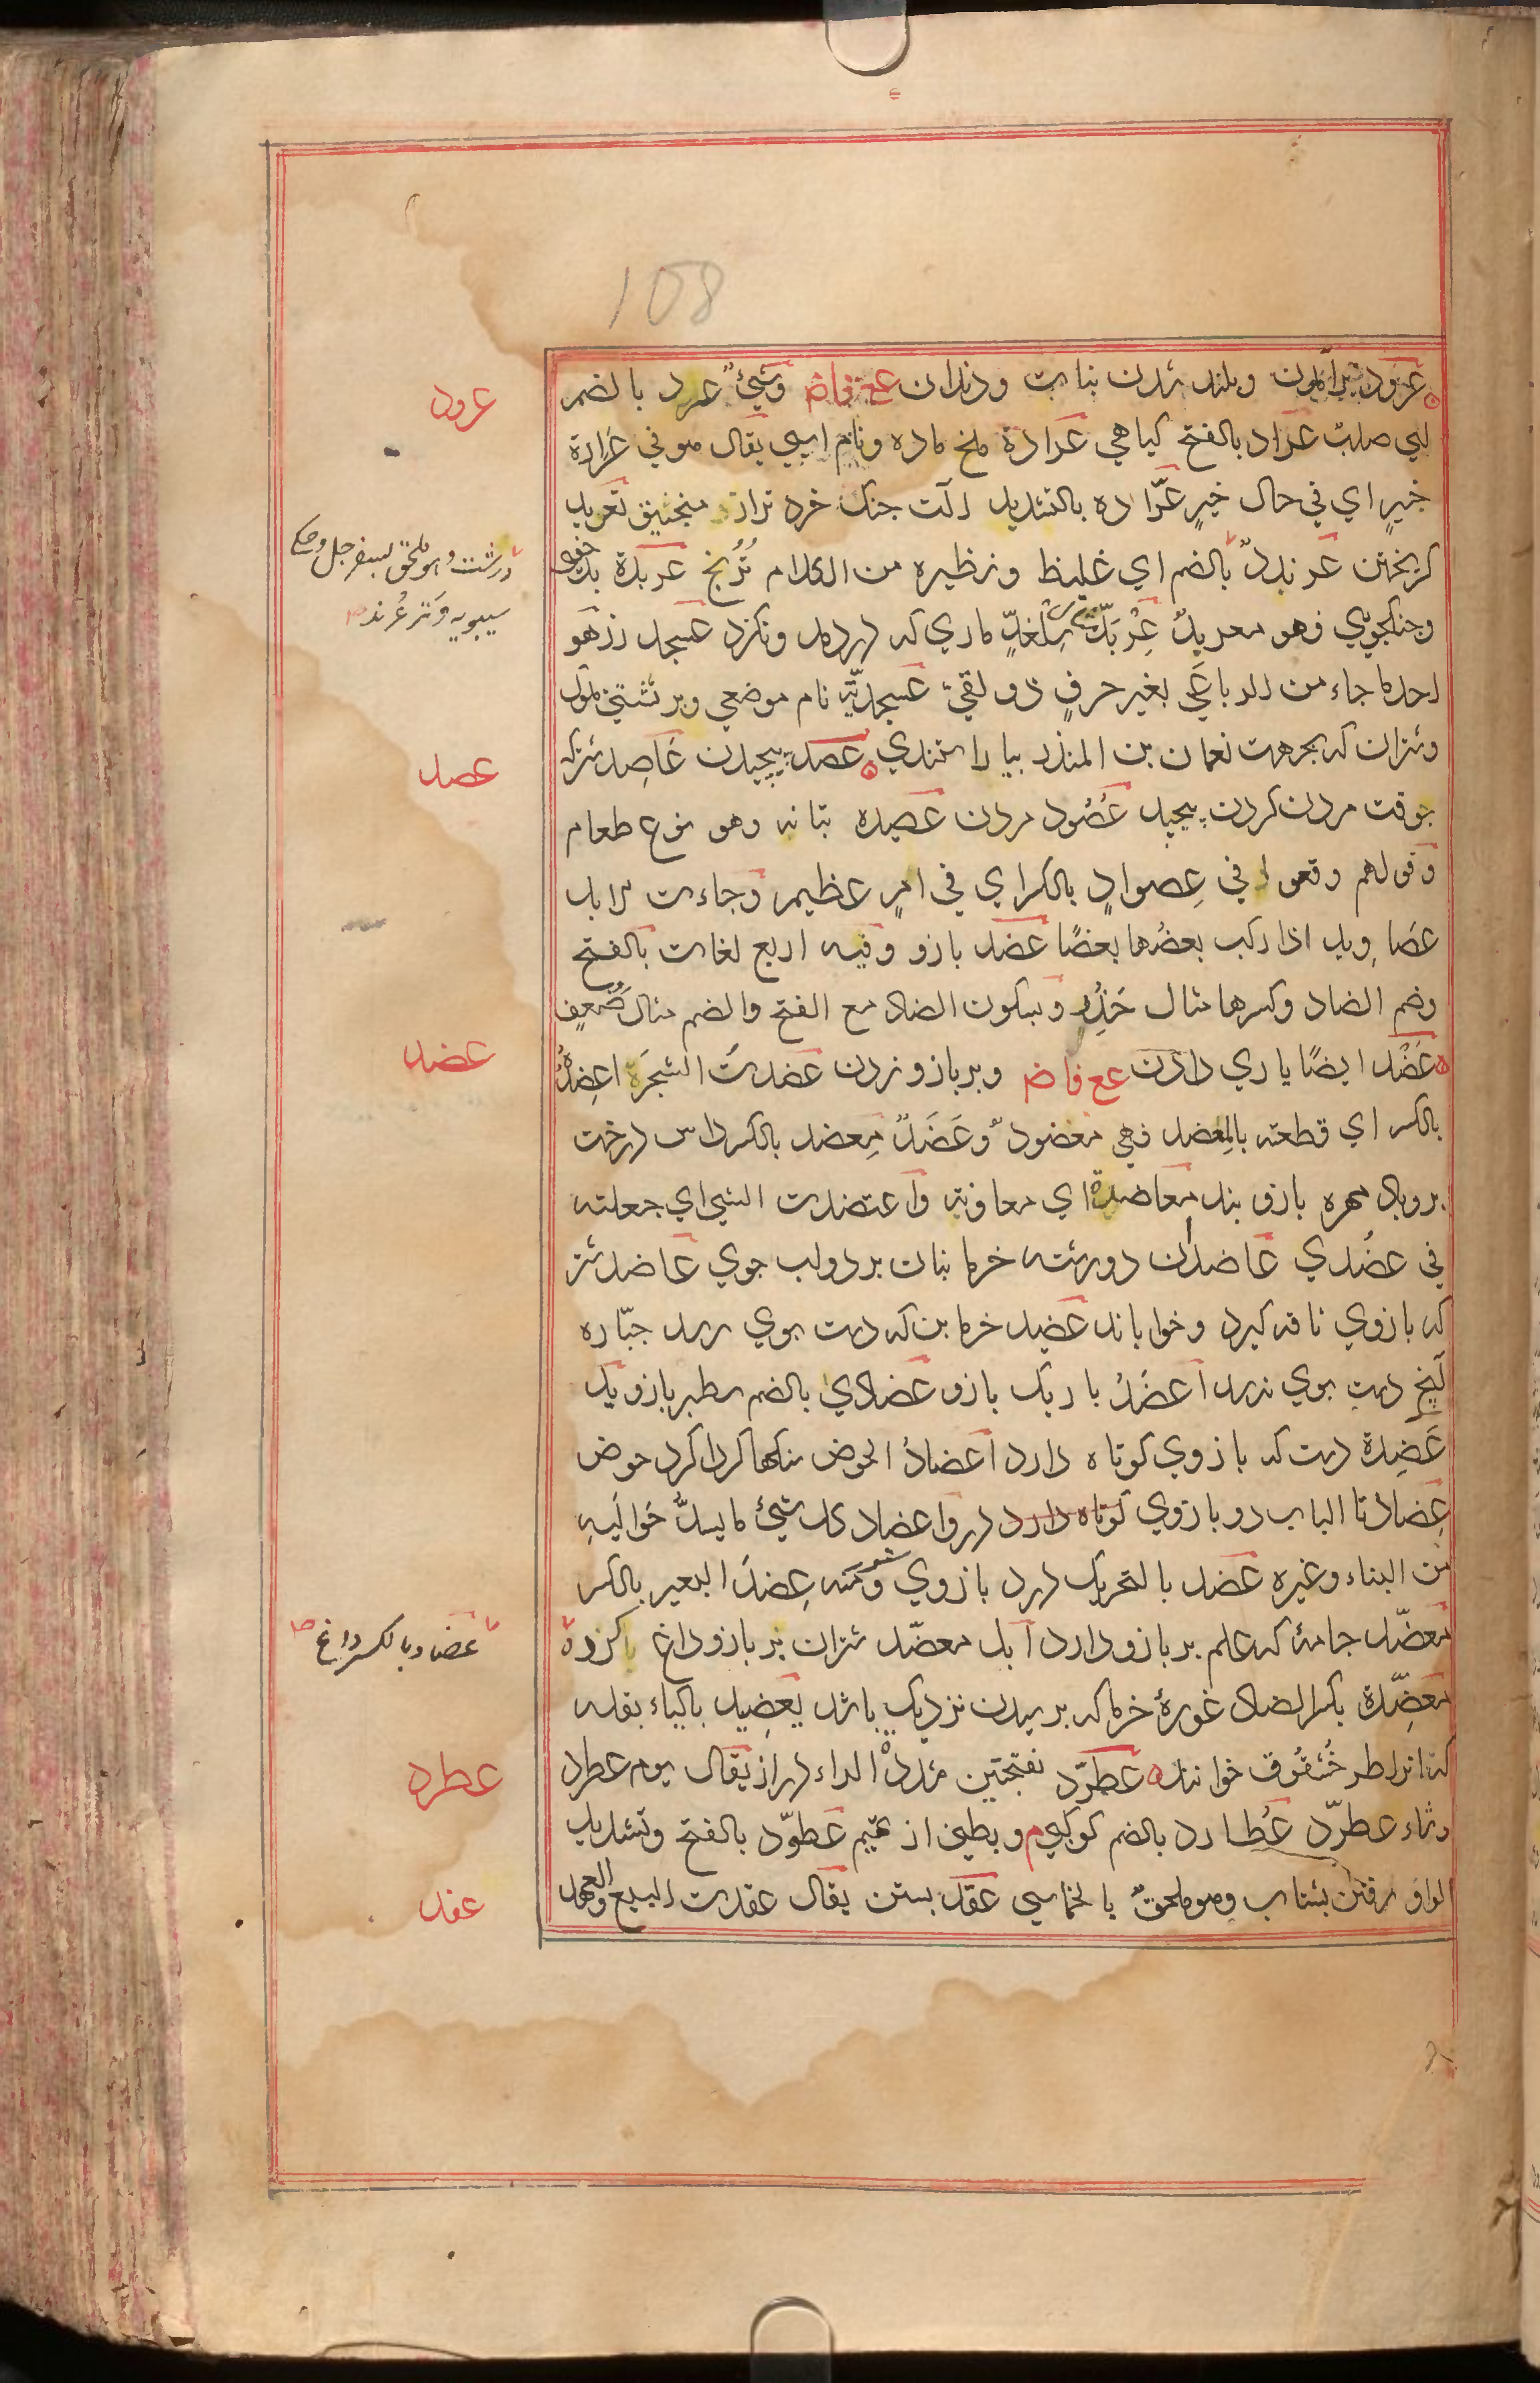 108
عرود
عرود برآمدن وبلند شدن نبات ودندان ع ف اض وشيءٌ عرد بالضم
اي صلب عراد بالفتح كياهي عرادة ملخ ماده ونام اسپي يقال هو في عرادة
خيرٍ اي في حال خيرٍ عرّاده بالتشديد آلت جنك خرد تراز منجنيق تعريد
كريختن عرندد بالضم اي غليظ ونظيره من الكلام تُرُنج عربدة بدخويي
درشت وهو ملحق بسفرجل وحكى
سيبويه وَتَر عُرند
وجنكجويي فهو معربدٌ عِرْبَدّ مثال سِلْغَدٍّ ماري كه دردمد ونكزد عسجد زر هو
احد ما جاء من الرباعي بغير حرفٍ ذو لقي عسجديّة نام موضعي وبر نشستني ملوك
وشتران كه بجهت نعمان بن المنذر بياراستندي عصد پيچيدن عاصد شتركه
عصد
بوقت مردن كردن پيچد عُصُود مردن عصيده بتانه وهو نوع طعام
وقولهم وقعوا في عِصوادٍ بالكسر اي في امرٍ عظيم وجاءت الابل
عصاويد اذا ركب بعضُها بعضًا عضد بازو وفيه اربع لغات بالفتح
وضم الضاد وكسرها مثال حَذُِر وبسكون الضاد مع الفتح والضم مثال ضَُعف
عضد
عَضْد ايضًا ياري دادن ع ف اض وبر بازو زدن عضدتُ الشجرَة اعضِدُهُ
بالكسر اي قطعته بالمِعضد فهي معضودٌ وعَضَدٌ مِعضد بالكسر داس درخت
برو بكَ مهره بازو بند معاضدة اي معاونة واعتضدت الشي اي جعلته
في عضُدي عاضدان دو رسته خرما بنان بر دولب جوي عاضد شتر
كه بازوي ناقه كيرد وخواباند عضيد خرما بن كه دست بوي رسد جبّاره
آنچ دست بوي نرسد اعضَدُ باريك بازو عضادي بالضم سطبر بازو يد
عَضِدة دست كه بازوي كوتاه دارد اعضادُ الحوض سنكها كرداكرد حوض
عِضادتا الباب دو بازوي كوتاه دارد درواعضاد كل شيءٍ ما يسدُّ حَوالَيهِ
من البناء وغيره عضد بالتحريك درد بازوي شتر ومنه عِضدَ البعير بالكسر
معضّد جامهٔ كه علم بر بازو دارد ابل معضّد شتران بر بازو داغ كرده
عضاد بالكسر داغ
معضِّدة بكسر الضاد غورهٔ خرما كه برسيدن نزديك باشد يعضِيد بالياء بقله
كه انرا طرخشقوق خوانند عطرّد بفتحتين مشددة الراء دراز يقال يوم عطرد
عطرد
وشاء عطرّد عُطارد بالضم كوكبي م وبطني از تميم عطوّد بالفتح وتشديد
الواو رفتن بشتاب وهو ملحقٌ بالخماسي عقد بستن يقال عقدت البيع والعهد
عقد